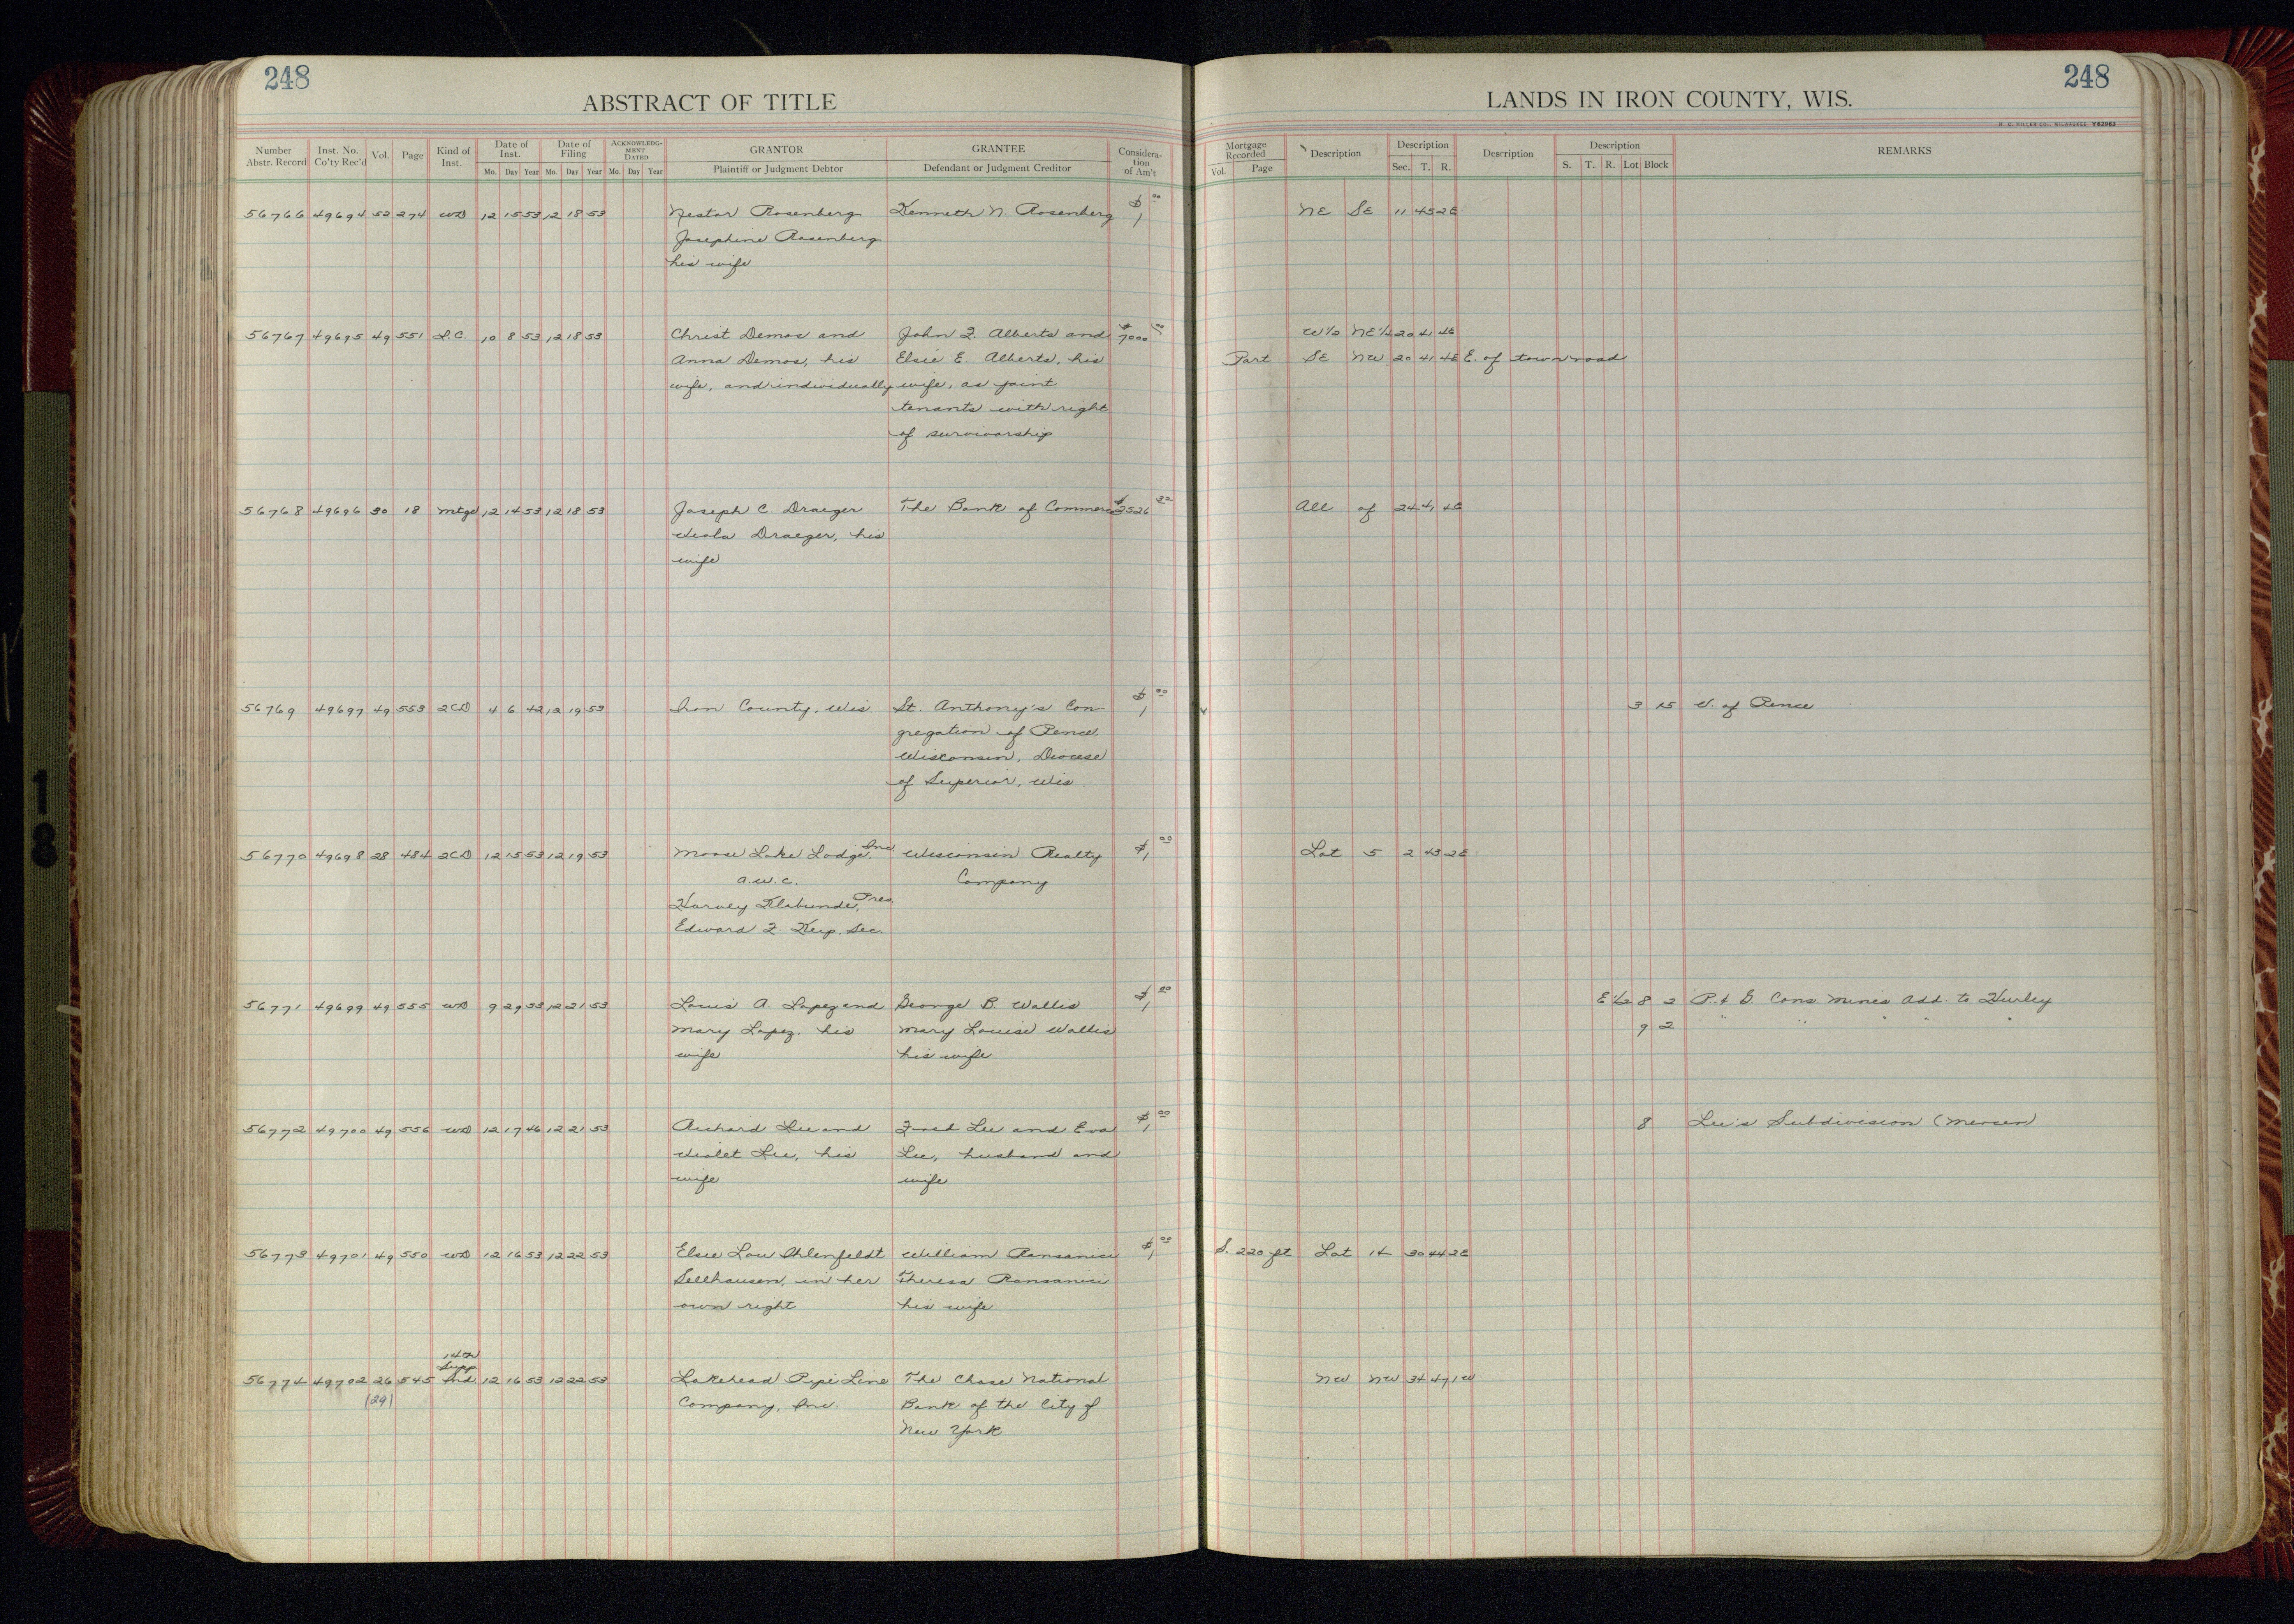 248
ABSTRACT OF TITLE
Number Abstr. Record Inst. No. Co'ty Rec'd Vol. Page Kind of Inst. Date of Inst. Mo. Day Year Date of Filing Mo. Day Year ACKNOWLEDGMENT DATED Mo. Day Year GRANTOR Plaintiff or Judgment Debtor GRANTEE Defendant or Judgment Creditor Consideration of Am't
56766 49694 52 274 WD 12 15 53 12 18 53 Nestor Rosenberg Kenneth N. Rosenberg $1 00
Josephine Rosenberg
his wife
56767 49695 49 551 L.C. 10 8 53 12 18 53 Christ Demos and John F. Alberts and $7000 00
Anna Demos, his Elsie E. Alberts, his
wife, and individually wife, as joint
tenants with right
of survivorship
56768 49696 30 18 Mtge 12 14 53 12 18 53 Joseph C. Draeger The Bank of Commerce $2526 32
Viola Draeger, his
wife
56769 49697 49 553 2CD 4 6 42 12 19 53 Iron County, Wis. St. Anthony's Con- $1 00
gregation of Pence,
Wisconsin, Diocese
of Superior, Wis.
56770 49698 28 484 2CD 12 15 53 12 19 53 Moose Lake Lodge, Inc. Wisconsin Realty $1 00
a.w.c. Company
Harvey Klabunde, Pres.
Edward F. Keip, Sec.
56771 49699 49 555 WD 9 29 53 12 21 53 Louis A. Lopez and George B. Wallis $1 00
Mary Lopez, his Mary Louise Wallis
wife his wife
56772 49700 49 556 WD 12 17 46 12 21 53 Richard Lee and Fred Lee and Eva $1 00
Violet Lee, his Lee, husband and
wife wife
56773 49701 49 550 WD 12 16 53 12 22 53 Elsie Lou Ohlenfeldt William $1 00
Sellhausen, in her Theresa
own right his wife
14th
Supp
56774 49702 26 545 Ind. 12 16 53 12 22 53 Lakehead Pipe Line The Chase National
(29) Company, Inc. Bank of the City of
New York
248
LANDS IN IRON COUNTY, WIS.
H. C. MILLER CO., MILWAUKEE Y52963
Mortgage Recorded Vol. Page Description Description Sec. T. R. Description Description S. T. R. Lot Block REMARKS
NE SE 11 45 2E
W½ NE¼ 20 41 4E
Part SE NW 20 41 4E E. of town road
All of 24 41 4E
3 15 V. of Pence
Lot 5 2 43 2E
E½ 8 2 P. & G. Cons Mines Add. to Hurley
9 2 " " " " "
8 Lee's Subdivision (Mercer)
S. 220 ft Lot 14 30 44 2E
NW NW 34 47 1W
18